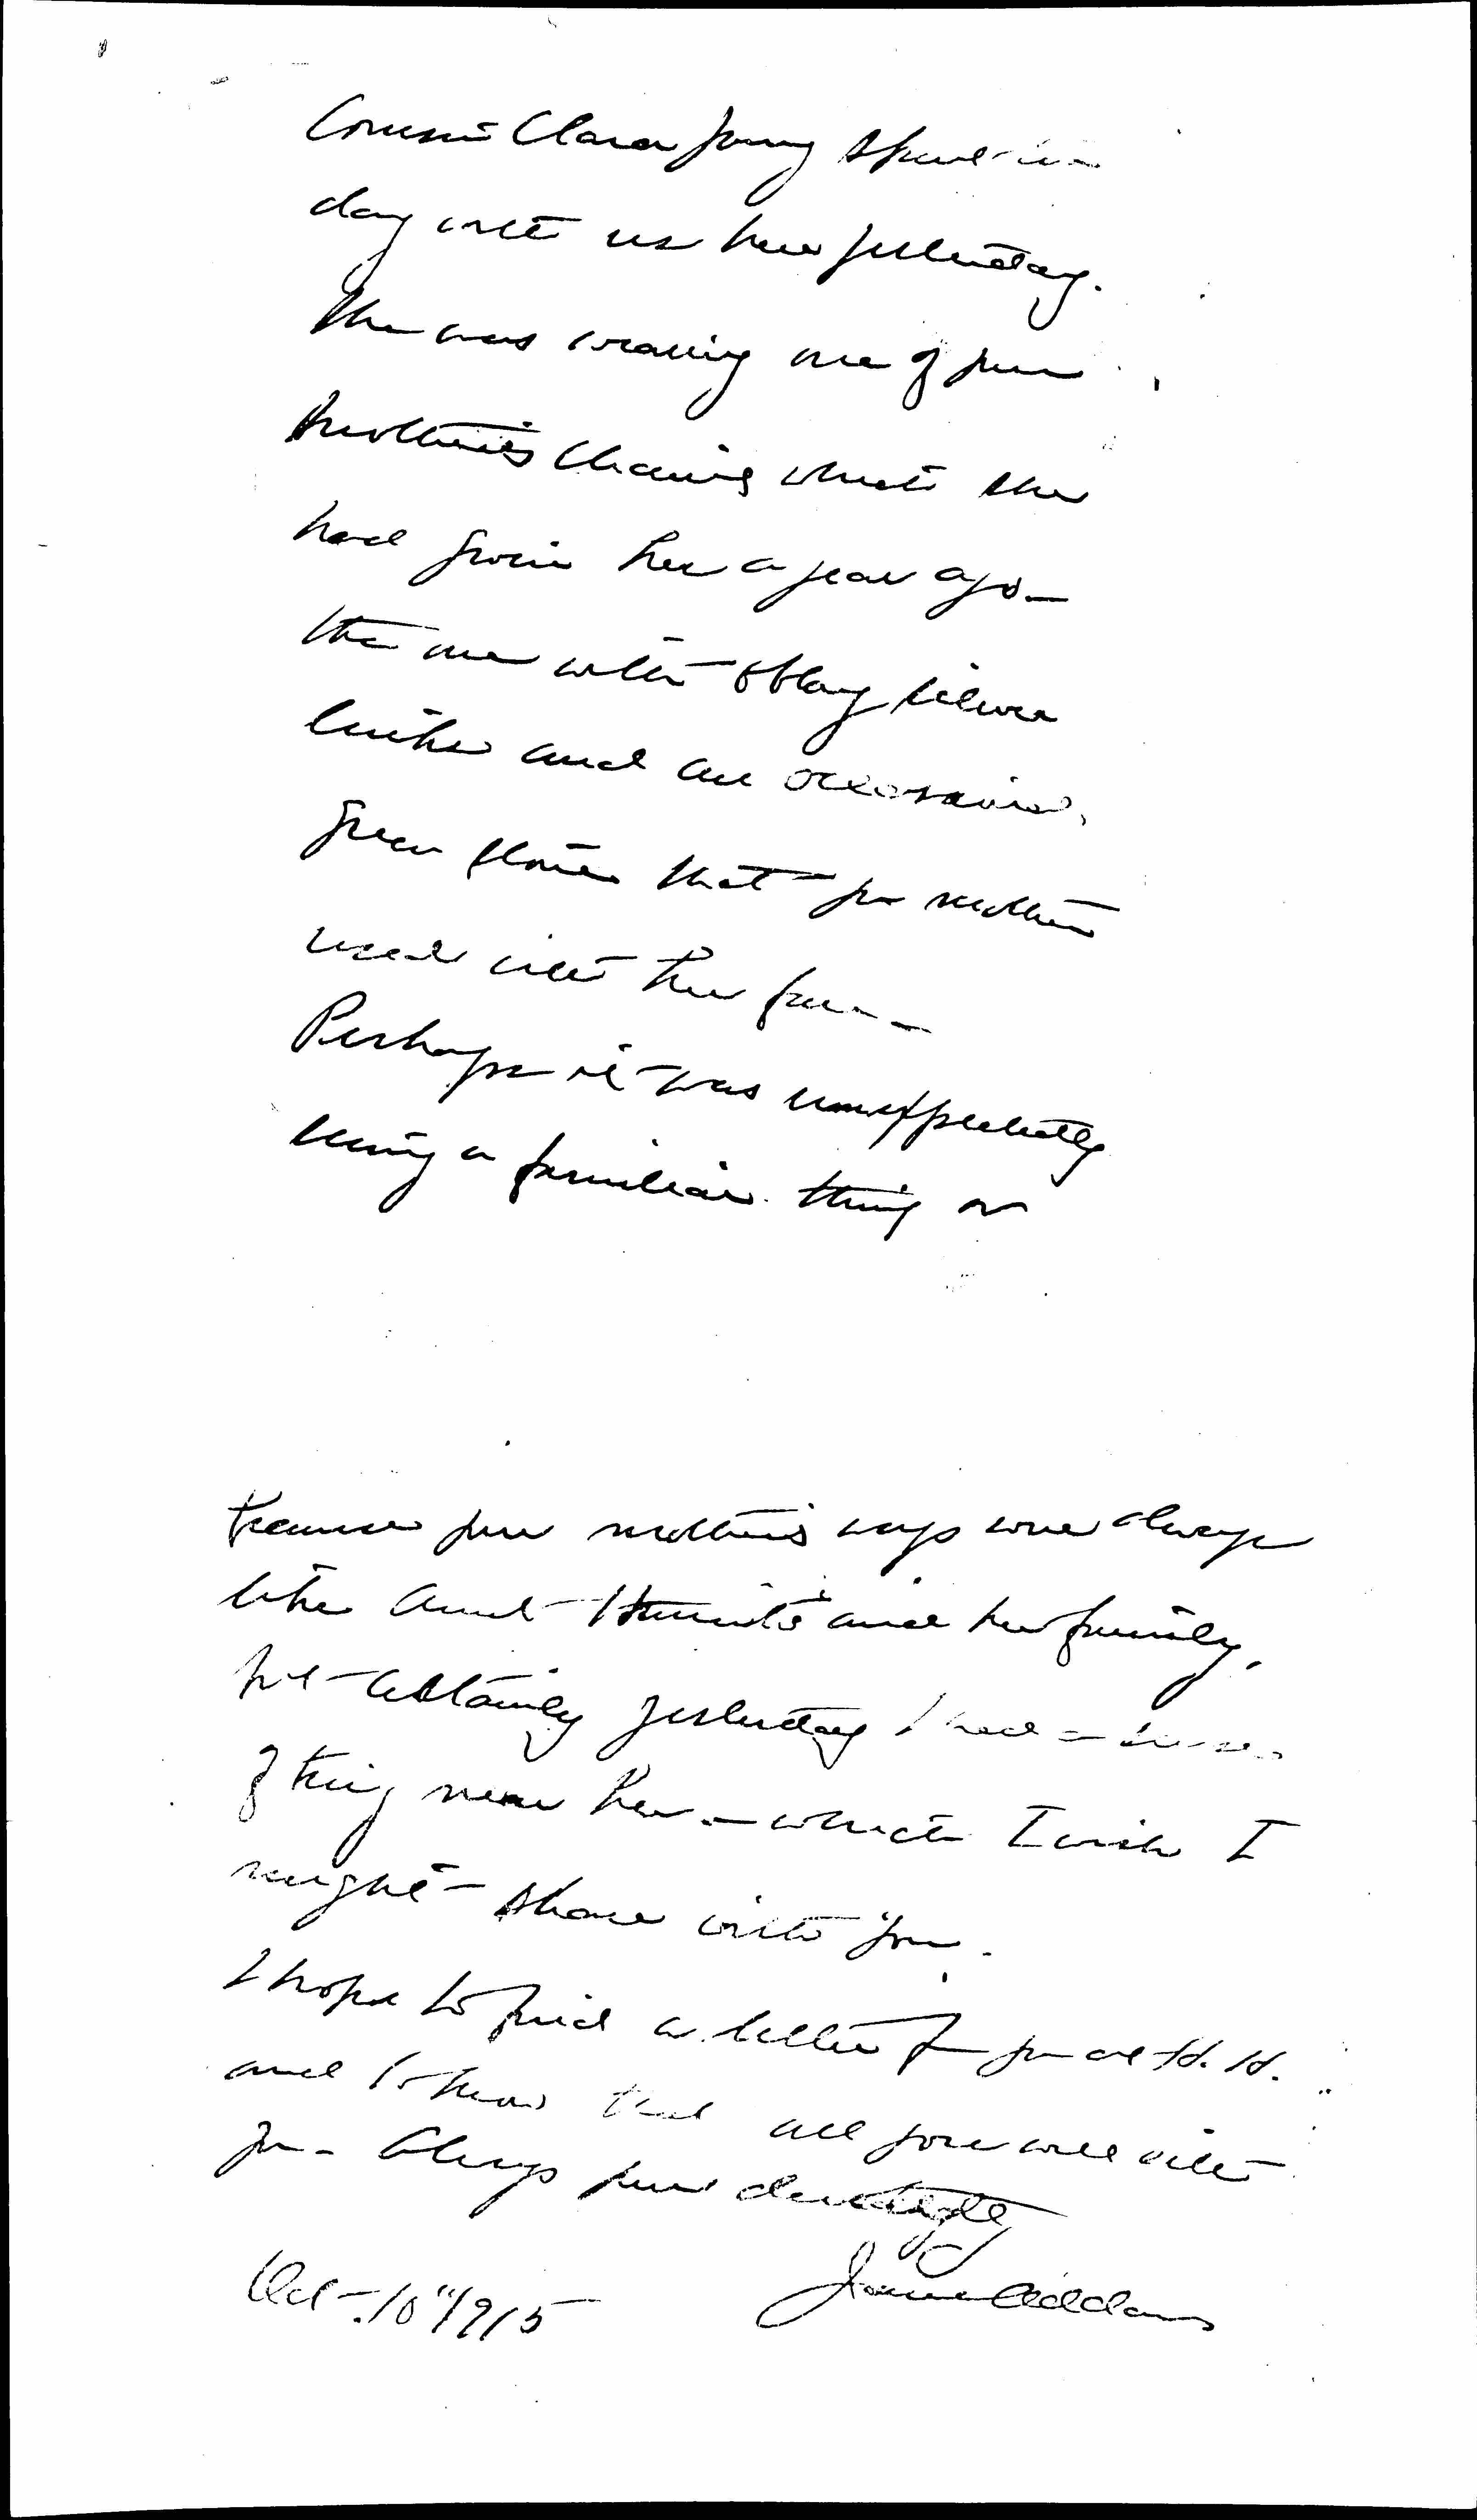 Cousin Clara Young spent the
day with us here yesterday.
She was wearing one of your
mother's chains which she
had given her a year ago —
the one with oblong silver
links and an occasional
green stone that your mother
used with her fan —
Perhaps it was unexpectedly
seeing a familiar thing or
because your mother's ways were always
like Aunt and her family,
but certainly yesterday I had a sense
of being near her — which I wish I
might share with you.
I hope to find a letter from you at H. H.
and to know that all goes well with
you. Always your devotedly
Jane Addams
Oct. 10" 1915